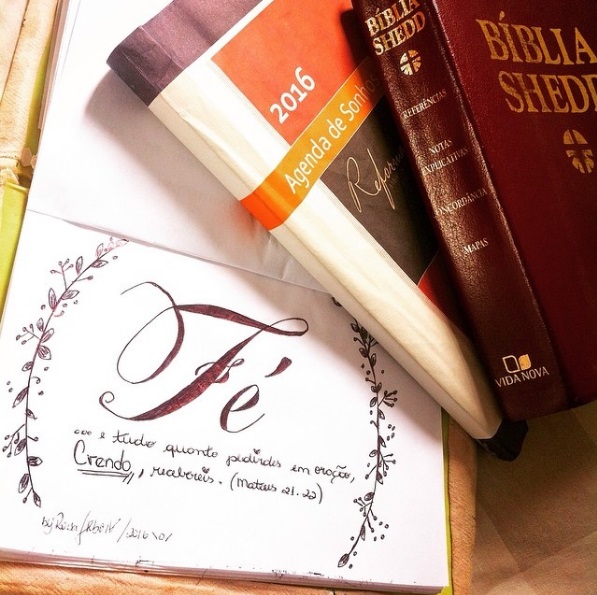 2016
Agenda de Sonho
BÍBLIA
SHEDD
REFERÊNCIAS
NOTAS
EXPLICATIVAS
CONCORDÂNCIA
MAPAS
VIDA NOVA
BÍBLIA
SHEDD
Fé
... e tudo quanto pedirdes em oração,
Crendo, recebereis. (Mateus 21.22)
by